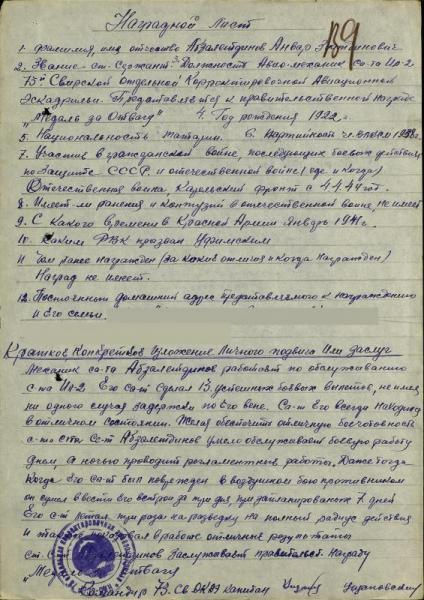 Наградной Лист
1. Фамилия, имя отчество Абзалетдинов Анвар
2. Звание - ст. Сержант 3. Должность Авио-механик са-та Ил-2
73й Свирской Отдельной Корректировочной Авиационной
Эскадрильи. Представляется к правительственной Награде
"Медаль за Отвагу" 4. Год рождения 1922 г.
5. Национальность татарин 6. Партийность чл. ВЛКСМ
7. Участие в гражданской войне, последующих боевых действиях
по защите СССР и отечественной войне (где и когда)
Отечественная война Карельский фронт с 4.4.44 г.
8. Имеет-ли ранения и контузии в отечественной войне, не имеет
9. С какого времени в Красной Армии Январь 1941 г.
10. Каким РВК призван Уфимским
11. Чем ранее награжден (за какие отличия и когда награжден)
Наград не имеет.
12. Постоянный домашний адрес представляемого к награждению
и его семьи.
Краткое Конкретное изложение личного подвига или заслуг
Механик са-та Абзалетдинов работает по обслуживанию
с-та Ил-2 Его са-т сделал 13 успешных боевых вылетов, не имея
ни одного случая задержки по его вене. Са-т Его всегда находил
в отличном состоянии. Желая обеспечить отличную боеготовность
с-та Абзалетдинов умело обслуживает боевую работу
Днем, а ночью проводит регламентные работы. Даже тогда
Когда Его са-т был поврежден в воздушном бою противником
он сумел его за три дня, при запланированных 7 дней
Его с-т летал три раза на разведку на полный радиус действия
и показывал в работе отличные результаты
ст. Заслуживает правительст. Награду
"Медаль
Командир 73. Св ОКАЭ капитан